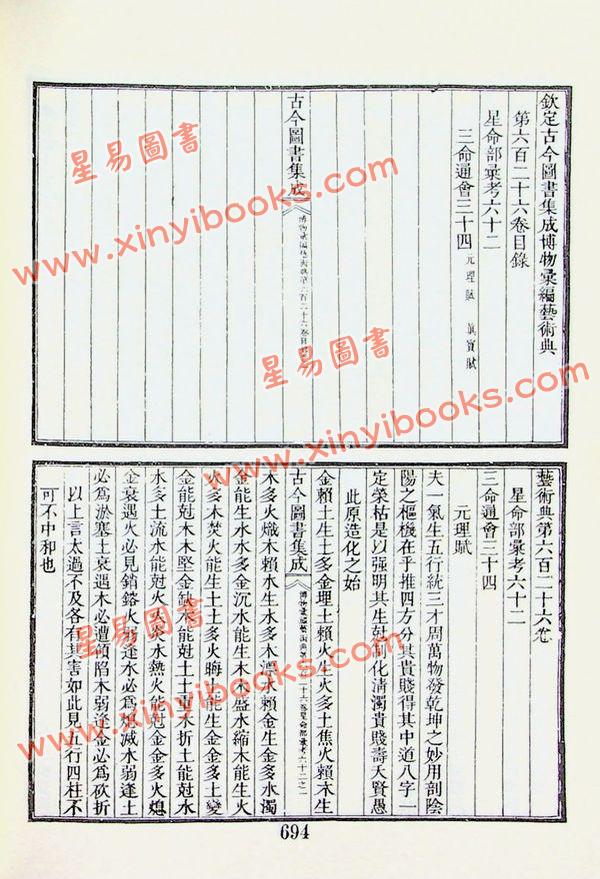 欽定古今圖書集成博物彙編藝術典
第六百二十六卷目錄
星命部彙考六十二
三命通會三十四 元理賦 真寶賦
古今圖書集成
藝術典第六百二十六卷
星命部彙考六十二
三命通會三十四
元理賦
夫一氣生五行統三才周萬物發乾坤之妙用剖陰
陽之樞機在乎推四方分其貴賤得其中道八字一
定榮枯是以强明其生尅制化淸濁貴賤壽夭賢愚
此原造化之始
金賴土生土多金埋土賴火生火多土焦火賴木生
古今圖書集成
木多火熾木賴水生水多木漂水賴金生金多水濁
金能生水水多金沉水能生木木盛水縮木能生火
火多木焚火能生土土多火晦土能生金金多土變
金能尅木木堅金缺木能尅土土重木折土能尅水
水多土流水能尅火火炎水熱火能尅金金多火熄
金衰遇火必見銷鎔火弱逢水必爲熄滅水弱逢土
必爲淤塞土衰遇木必遭傾陷木弱逢金必爲砍折
以上言太過不及各有其害如此見五行四柱不
可不中和也
694
星易圖書
www.xinyibooks.com
www.xinyibooks.com
星易圖書
www.xinyibooks.com
星易圖書
www.xinyibooks.com